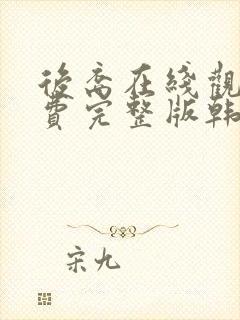 後喬在綫觀
費完整版韩
宋九